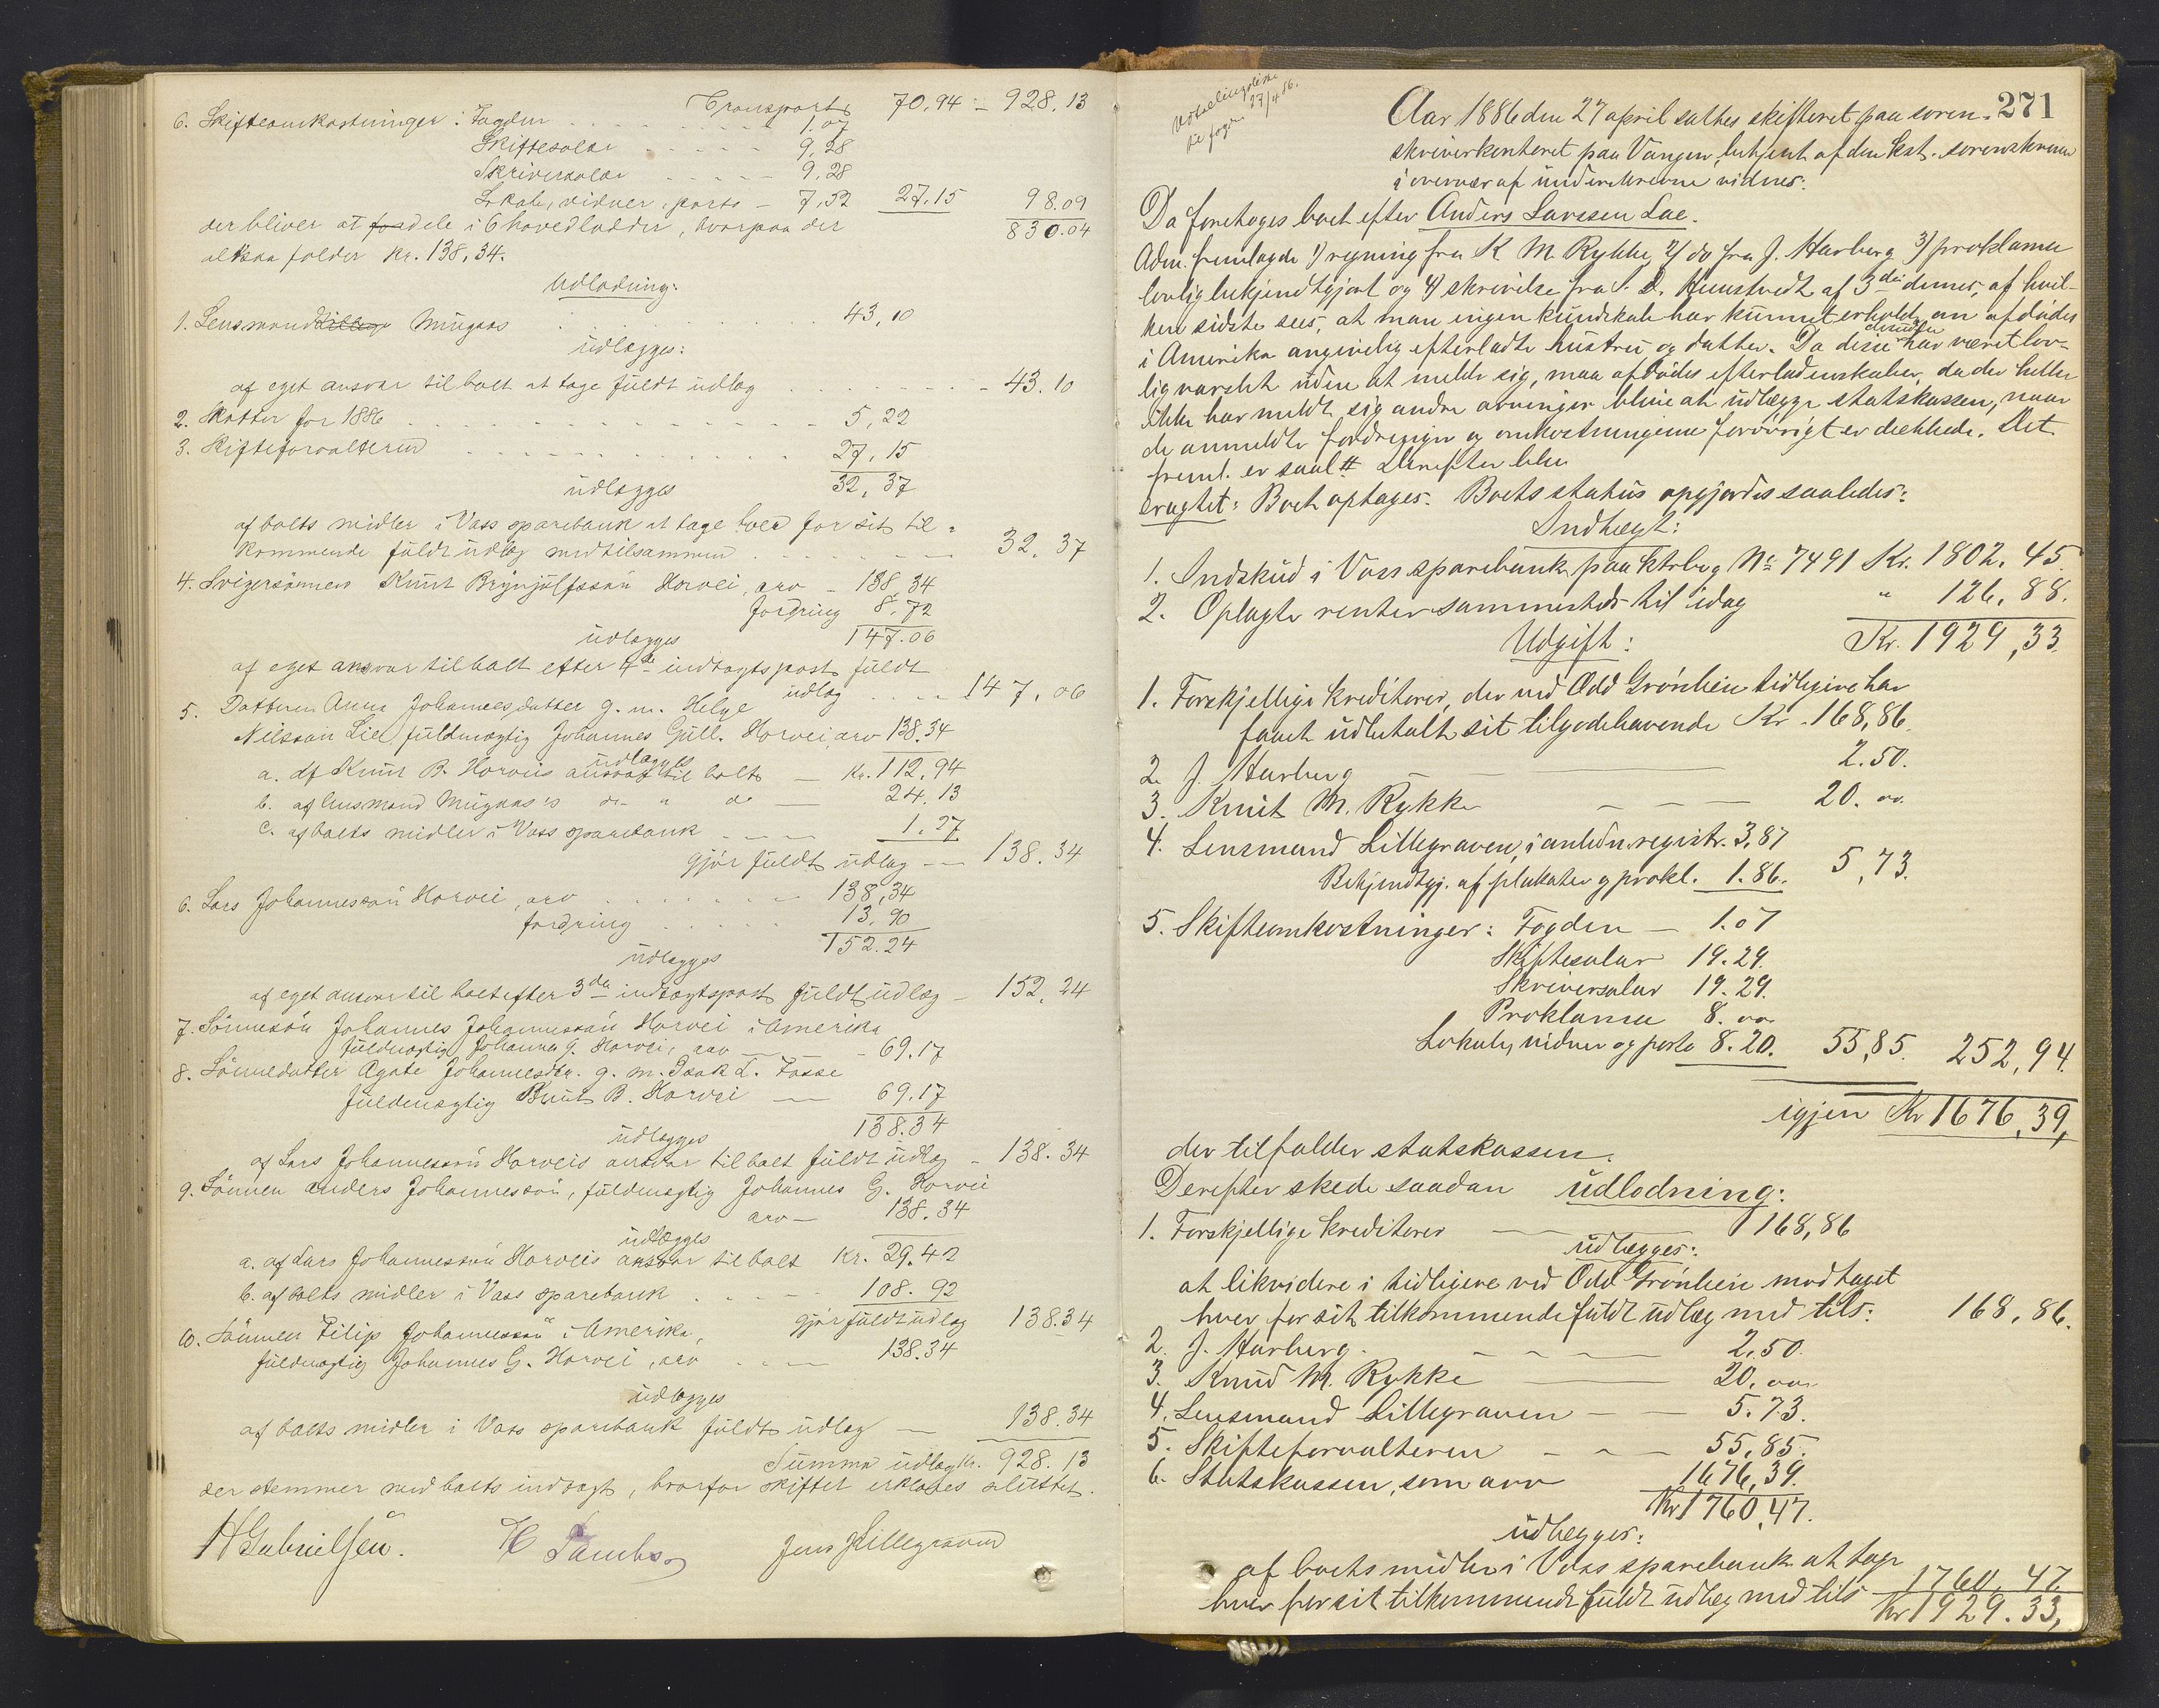 Transport 70.94 – 928.13
6. Skifteomkostninger: Fogden . . . 1.07
Skiftesalær . . . 9,28
Skriversalær . . . 9.28
Lokale, vidner, porto – 7,52 27.15 98.09
der bliver at fordele i 6 hovedlodder, hvorpaa der 830.04
altsaa falder Kr. 138,34.
Udlodning:
1. Lensmand Mügaas . . . 43,10
udlægges:
af eget ansvar til boet at tage fuldt udlæg . . . 43.10
2. Skatter for 1886 . . . 5,22
3. Skifteforvalteren . . . 27,15
udlægges 32,37
af boets midler i Voss sparebank at tage hver for sit til-
kommende fuldt udlæg med tilsammen . . . 32.37
4. Svigersønnen Knut Brynjulfssøn Horvei, arv – 138,34
fordring 8,72
udlægges 147.06
af eget ansvar til boet efter 4de indtægtspost fuldt
udlæg . . . 147,06
5. Datteren Anna Johannesdatter g. m. Helge
Nilssøn Lie, fuldmægtig Johannes Gull. Horvei, arv 138.34
udlægges
a. af Knut B. Horveis ansvar til boet – Kr. 112,94
b. af lensmand Mügaas's do " do — 24,13
c. af boets midler i Voss sparebank . . . 1.27
gjør fuldt udlæg — 138.34
6. Lars Johannessøn Horvei, arv . . . 138,34
fordring . . . 13,90
udlægges 152.24
af eget ansvar til boet efter 3de indtægtspost fuldt udlæg – 152,24
7. Sønnesøn Johannes Johannessøn Horvei i Amerika
fuldmægtig Johannes G. Horvei, arv — 69.17
8. Sønnedatter Agate Johannesdtr. g. m. Isak L. Fosse
fuldmægtig Knut B. Horvei — 69,17
udlægges 138.34
af Lars Johannessøn Horveis ansvar til boet fuldt udlæg – 138.34
9. Sønnen Anders Johannessøn, fuldmægtig Johannes G. Horvei
arv — 138.34
udlægges
a. af Lars Johannessøn Horveis ansvar til boet Kr. 29.42
b. af boets midler i Voss sparebank . . . 108.92
gjør fuldt udlæg 138.34
10. Sønnen Filip Johannessøn i Amerika,
fuldmægtig Johannes G. Horvei, arv . . . 138.34
udlægges
af boets midler i Voss sparebank fuldt udlæg — 138.34
Summa udlæg Kr. 928.13
der stemmer med boets indtægt, hvorfor skiftet erklæres sluttet.
H Gabrielsen. Jens Lillegraven
Udbetalingsliste
til fogden 27/4 86.
271
Aar 1886 den 27 april sattes skifteret paa soren-
skriverkontoret paa Vangen, betjent af den kst. sorenskriver
i overvær af undertegnede vidner.
Da foretoges boet efter Anders Larssen Lae.
Adm. fremlagde 1) regning fra K M Rykke, 2) do fra J. Harberg 3) proklama
lovlig bekjendtgjort og 4) skrivelse fra S. D. Hunstvedt af 3die dennes, af hvil-
ken sidste sees, at man ingen kundskab har kunnet erholde om afdødes
i Amerika angivelig efterladte hustru og datter. Da disse desuden har været lov-
lig varslet uden at melde sig, maa afdødes efterladenskaber, da der heller
ikke har meldt sig andre arvinger blive at udlægge statskassen, naar
de anmeldte fordringer og omkostningerne forøvrigt er dækkede. Det
freml. er saal. # Derefter blev
eragtet: Boet optages. Boets status opgjordes saaledes:
Indtægt:
1. Indskud i Voss sparebank paa ktrbog No 7491 Kr. 1802.45
2. Oplagte renter sammesteds til idag " 126.88.
Udgift: Kr. 1929,33.
1. Forskjellige kreditorer, der ved Odd Grønlien tidligere har
faaet udbetalt sit tilgodehavende Kr. 168,86.
2. J. Harberg — 2.50.
3. Knut M. Rykke — 20. "
4. Lensmand Lillegraven, i anledn. registr. 3,87
Bekjendtgj. af plakater og prokl. 1.86. 5,73.
5. Skifteomkostninger: Fogden — 1.07
Skiftesalær 19.29.
Skriversalær 19.29.
Proklama 8. "
Lokale, vidner og porto 8.20. 55,85. 252,94.
igjen Kr 1676,39,
der tilfalder statskassen.
Derefter skede saadan udlodning:
1. Forskjellige kreditorer — 168,86
udlægges:
at likvidere i tidligere ved Odd Grønlien modtaget
hver for sit tilkommende fuldt udlæg med tils: 168,86.
2. J. Harberg. — 2.50.
3. Knud M. Rykke — 20. "
4. Lensmand Lillegraven — 5.73.
5. Skifteforvalteren — 55,85.
6. Statskassen, som arv 1676,39.
Kr 1760,47.
udlægges:
af boets midler i Voss sparebank at tage
hver for sit tilkommende fuldt udlæg med tils 1760,47
Kr 1929.33,